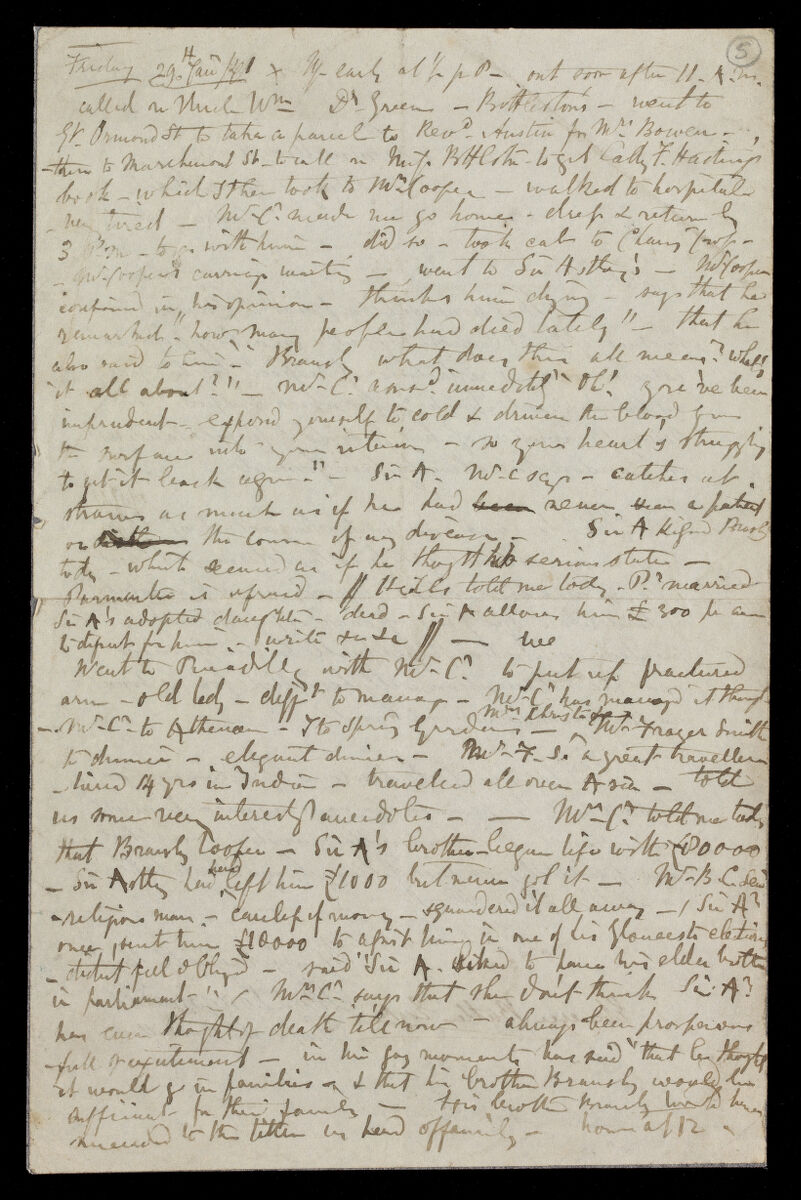 5
Friday 29th Jany 1841 x Up early at ½ p 8 - out soon after 11. A.m.
called on Uncle Wm Dr Green - Bottleston's - went to
Gt. Ormond St to take a parcel to Revd. Austin for Mrs Bowen -
- then to Marchmont St. to call on Miss to get Cathy F. Hastings
book - which I then took to Mr Cooper - walked to hospital
- very tired - Mr C. made me go home - dress & return by
3 p.m - to go with him - did so - took cab to Charg Cross -
- Mr Cooper's carriage waiting - went to Sir Astley's - Mr Cooper
confirmed in his opinion - thinks him dying - says that he
remarked "how many people had died lately" - that he
also said to him - "Bransby what does this all mean? what's
it all about?" - Mr C. answd. immedtly "Oh! you've been
imprudent - exposed yourself to cold & driven the blood from
the surface into your interior - so your heart is struggling
to get it back again." - Sir A. Mr C says - catches at
straws as much as if he had never seen a patient
or the course of any disease - Sir A Bransby
today - which seemed as if he thought his serious state -
Parmenter is afraid - // told me today - P. married
Sir A's adopted daughter - dead - Sir A allows him £300 pr ann
to for him - write //
Went to Piccadilly with Mr C. to put up fractured
arm - old lady - difft to manage - Mr C. has managd it though
- Mr C. to Athenaeum - I to Spring Gardens - Mrs Christie Mr Frazer Smith
to dinner - elegant dinner - Mr F. S. a great traveller
- lived 14 yrs in India - traveled all over Asia - told
us some very interestg anecdotes - Mrs C. told me today
that Bransby Cooper - Sir A's brother began life with £80000
- Sir Astley had been left him £1000 but never got it - Mr B. C. Senr
- religious man - careless of money - squandered it all away - (Sir A.
once sent him £10000 to assist him in one of his Gloucester elections
- didnt feel obliged - said "Sir A. liked to have his elder brother
in parliament") Mrs C. says that she don't think Sir A.
has ever thought of death till now - always been prosperous
- full of excitement - in his gay moments has said "that he thought
it would go in families - & that his brother Bransby would be
sufficient for their family - His brother Bransby would have
succeeded to the title as head of family - home at 12 -